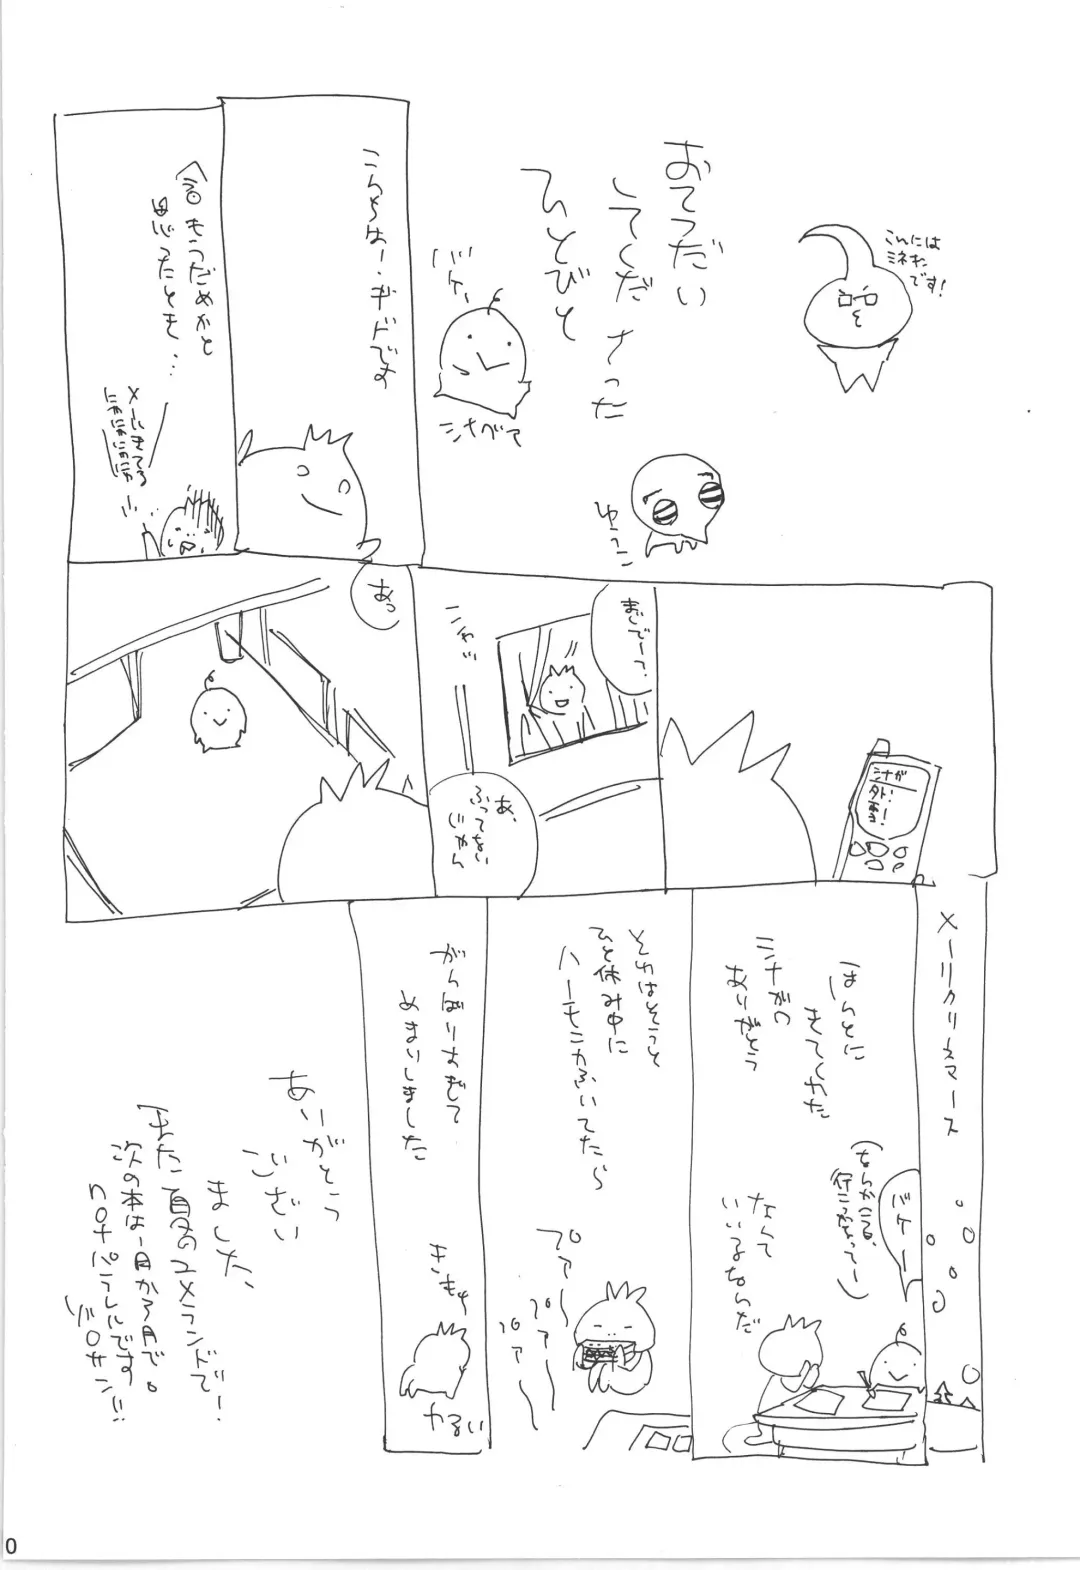 こんには
ミネオ
です!
おてつだい
してくださった
ひとびと
バケー
シナガワ
ゆっこ
こんちはー・ギドです
今日もうだめかと
思ったとき…
メールきてる
にゃにゃにゃにゃ
シナが
外!
雪!
まじでーっ?
シャッ
あ、
ふってない
じゃん
あっ
メーリクリスマース
ほんとに
きてくれた
シナガワ
ありがとう
バケー
なんて
いいやつなんだ
それはそうと
ひと休み中に
ハーモニカふいてたら
プァ〜
プァ〜
プァ〜
がんばりすぎて
めまいしました
きもち
わるい
ありがとう
ござい
ました、
また夏のユメランドで!
次の本は一月か3月で。